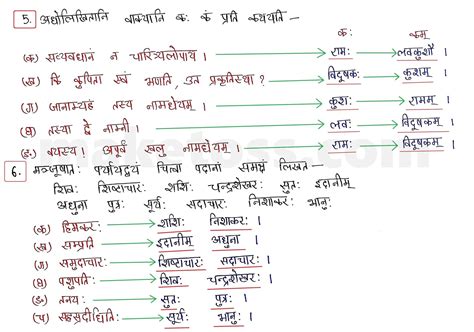 5. अधोलिखितानि वाक्यानि कः कं प्रति कथयति –
कः कम्
(क) सव्यवधानं न चारित्र्यलोपाय । रामः लवकुशौ ।
(ख) किं कुपिता एवं भणति, उत प्रकृतिस्था ? विदूषकः कुशम् ।
(ग) जानाम्यहं तस्य नामधेयम् । कुशः रामम् ।
(घ) तस्या द्वे नाम्नी । लवः विदूषकम् ।
(ङ) वयस्य । अपूर्वं खलु नामधेयम् । रामः विदूषकम् ।
6. मञ्जूषातः पर्यायद्वयं चित्वा पदानां समक्षं लिखत –
शिवः शिष्टाचारः शशिः चन्द्रशेखरः सुतः इदानीम्
अधुना पुत्रः सूर्यः सदाचारः निशाकरः भानुः
(क) हिमकरः शशिः निशाकरः ।
(ख) सम्प्रति इदानीम् अधुना ।
(ग) समुदाचारः शिष्टाचारः सदाचारः ।
(घ) पशुपतिः शिवः चन्द्रशेखरः ।
(ङ) तनयः सुतः पुत्रः ।
(च) सहस्रदीधितिः सूर्यः भानुः ।